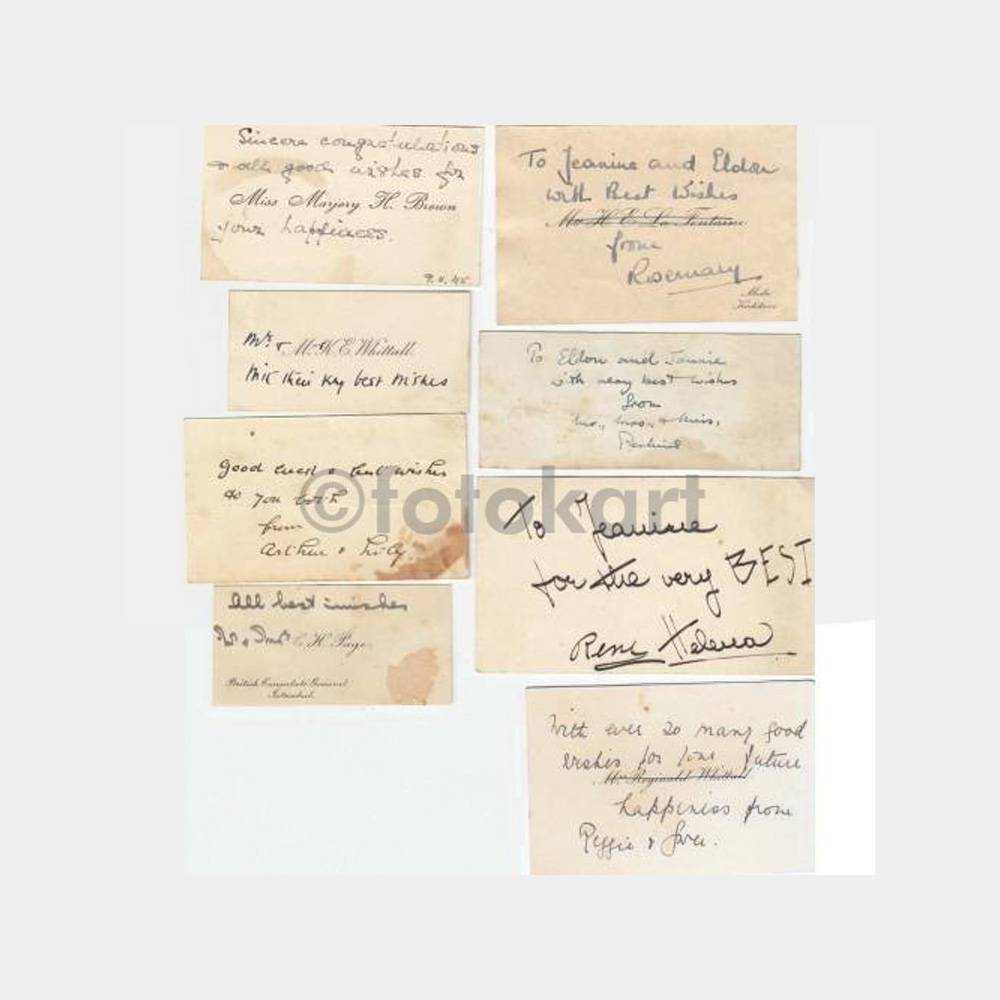 Sincere congratulations
& all good wishes for
Miss Marjory H. Brown
your happiness.
To Jeanine and Eldon
with Best Wishes
Mrs H. E. La Fontaine
from
Rosemary
Moda
Mr. &
M. K. E. Whittall
with their very best wishes
To Eldon and
with very best wishes
from
Mr., Mrs., & Miss,
Good luck & best wishes
to you both
from
Arthur &
To Jeanine
for the very BEST
René Helena
All best wishes
C. H. Page
British Consulate General
Istanbul.
With ever so many good
wishes for future
Mrs Reginald Whittall
happiness from
Reggie &
©fotokart